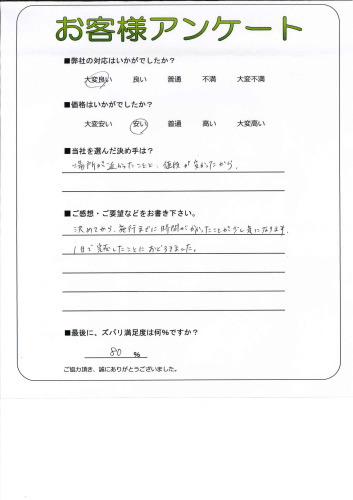 お客様アンケート
■弊社の対応はいかがでしたか？
大変良い 良い 普通 不満 大変不満
■価格はいかがでしたか？
大変安い 安い 普通 高い 大変高い
■当社を選んだ決め手は？
場所が近かったことと、値段が安かったから。
■ご感想・ご要望などをお書き下さい。
決めてから、発行までに時間がかかったことが少し気になります。
1日で完了したことにおどろきました。
■最後に、ズバリ満足度は何％ですか？
80 ％
ご協力頂き、誠にありがとうございました。